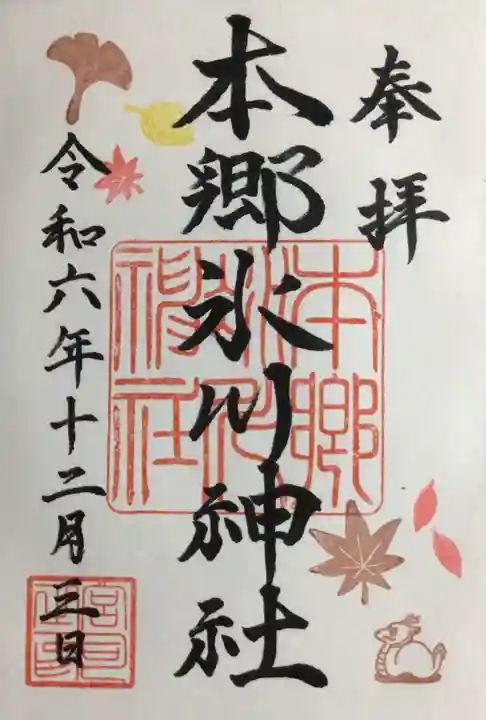 奉拝
本郷氷川神社
令和六年十二月三日
本郷
氷川
神社